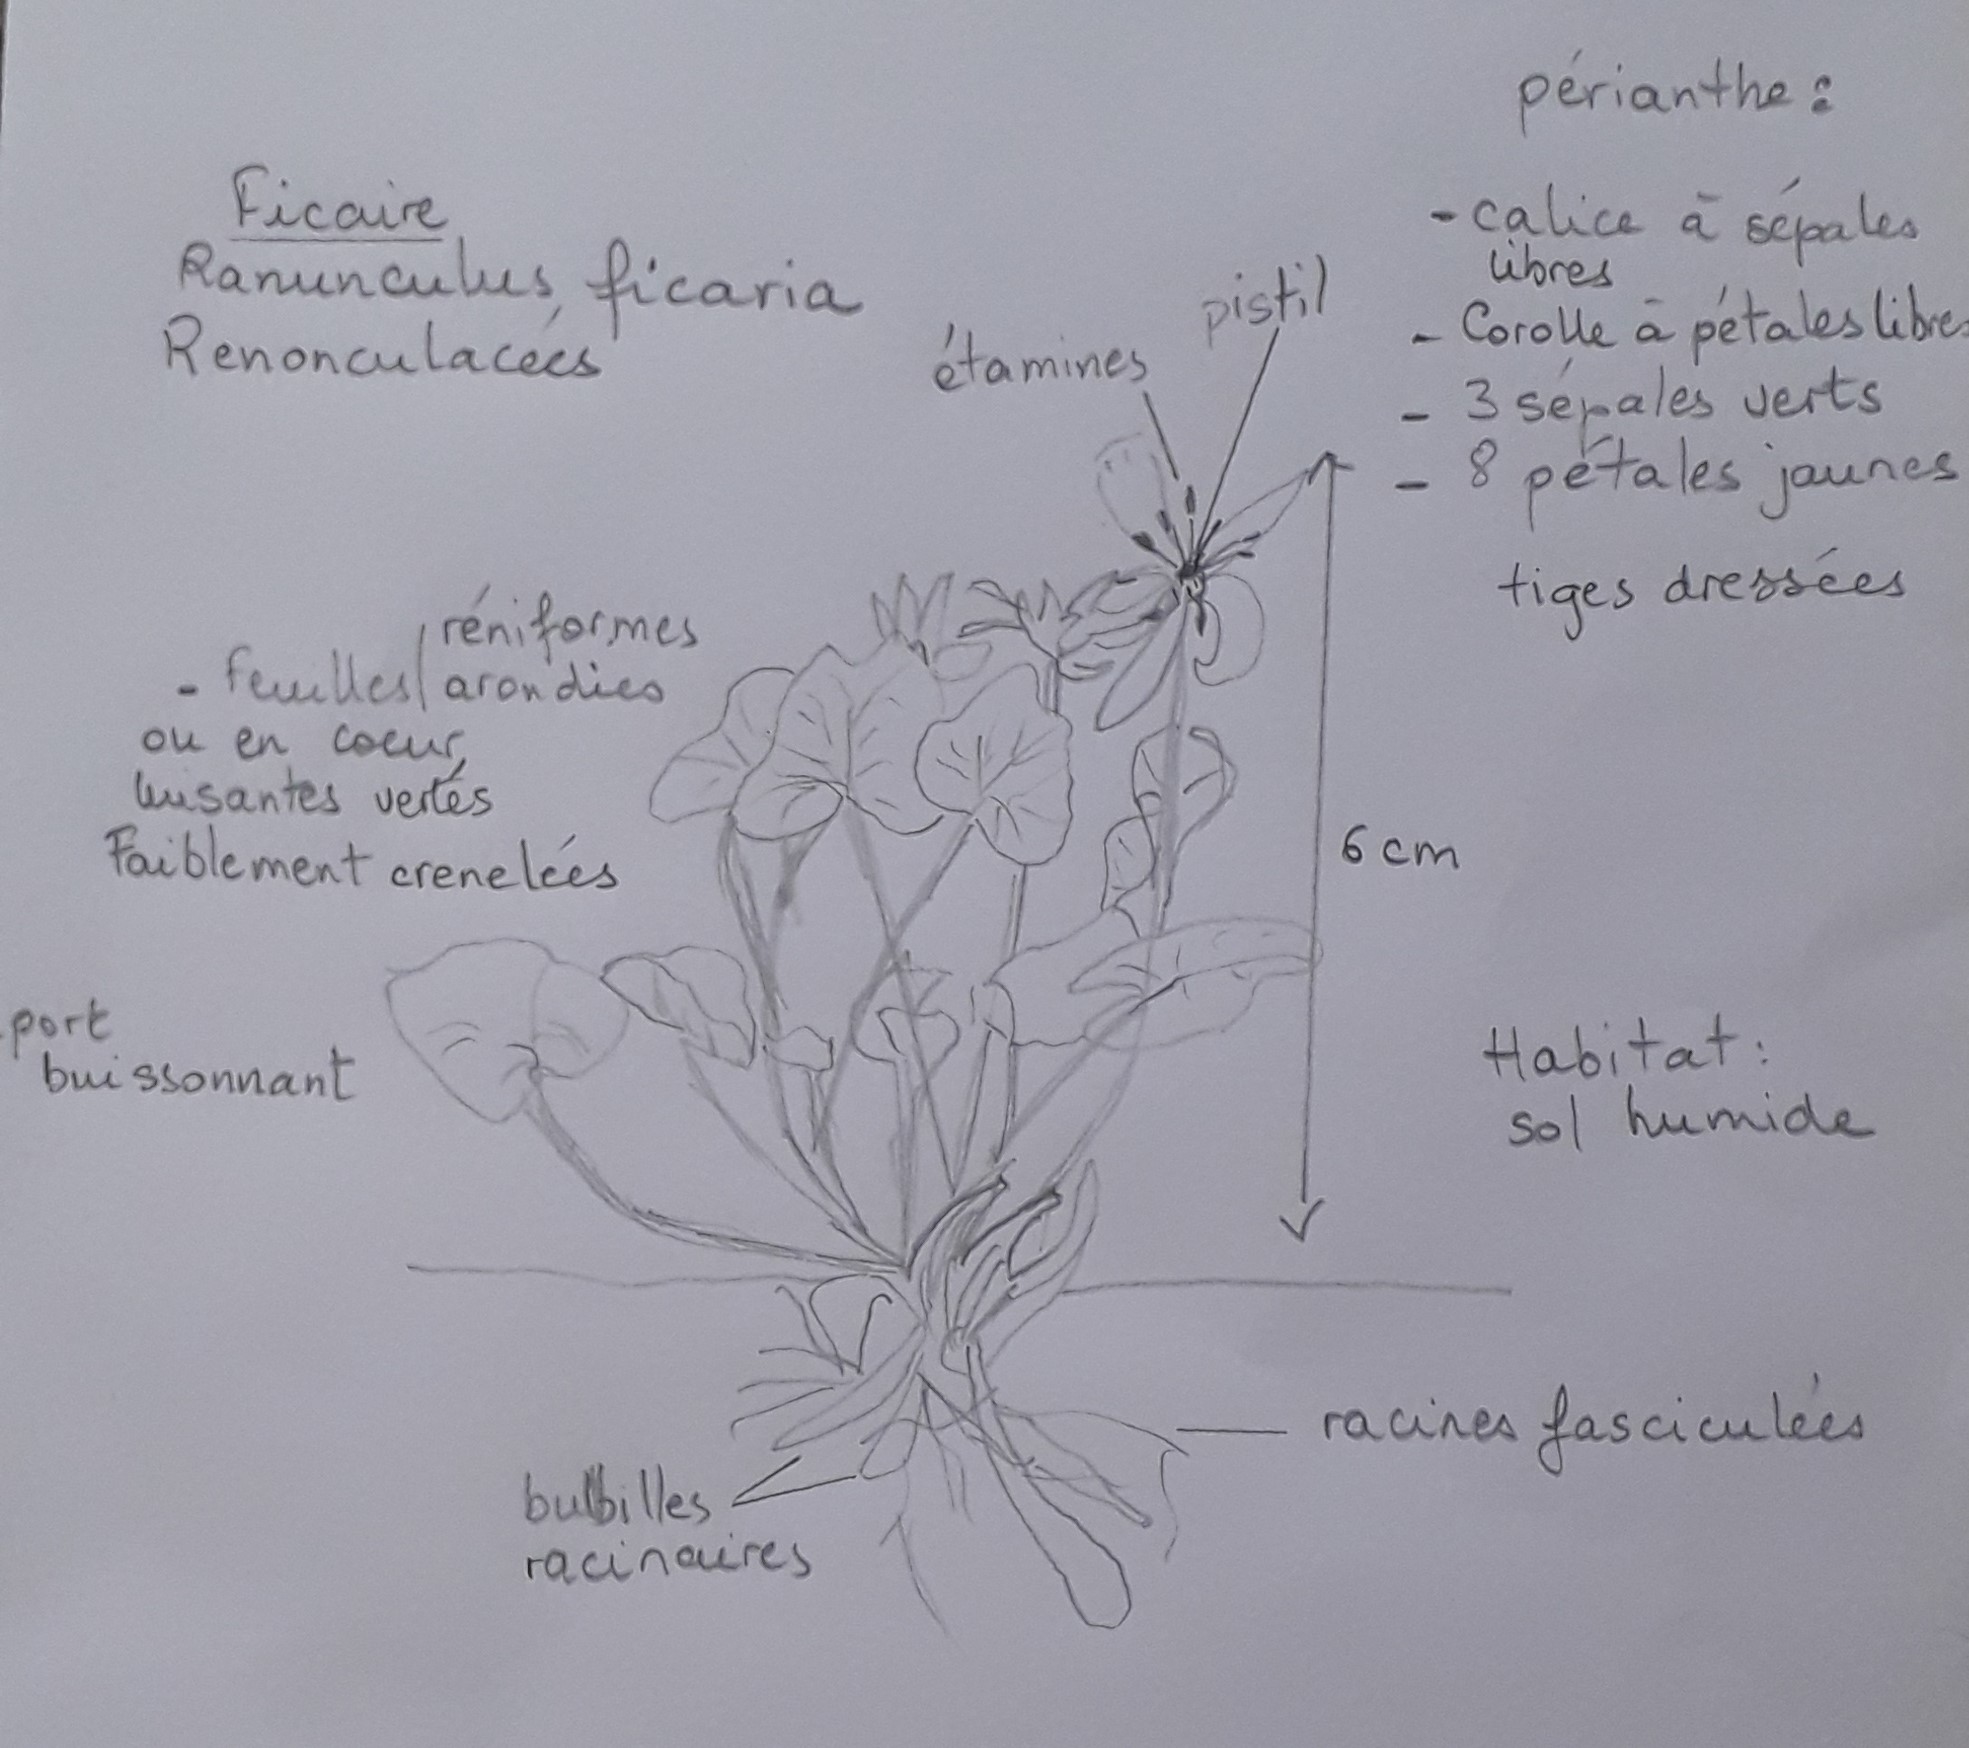 Ficaire
Ranunculus ficaria
Renonculacées
étamines
pistil
périanthe :
- calice à sépales
libres
- Corolle à pétales libres
- 3 sépales verts
- 8 pétales jaunes
tiges dressées
6 cm
réniformes
- feuilles / arondies
ou en coeur,
luisantes vertes
Faiblement crenelées
port
buissonnant
Habitat :
sol humide
racines fasciculées
bulbilles
racinaires